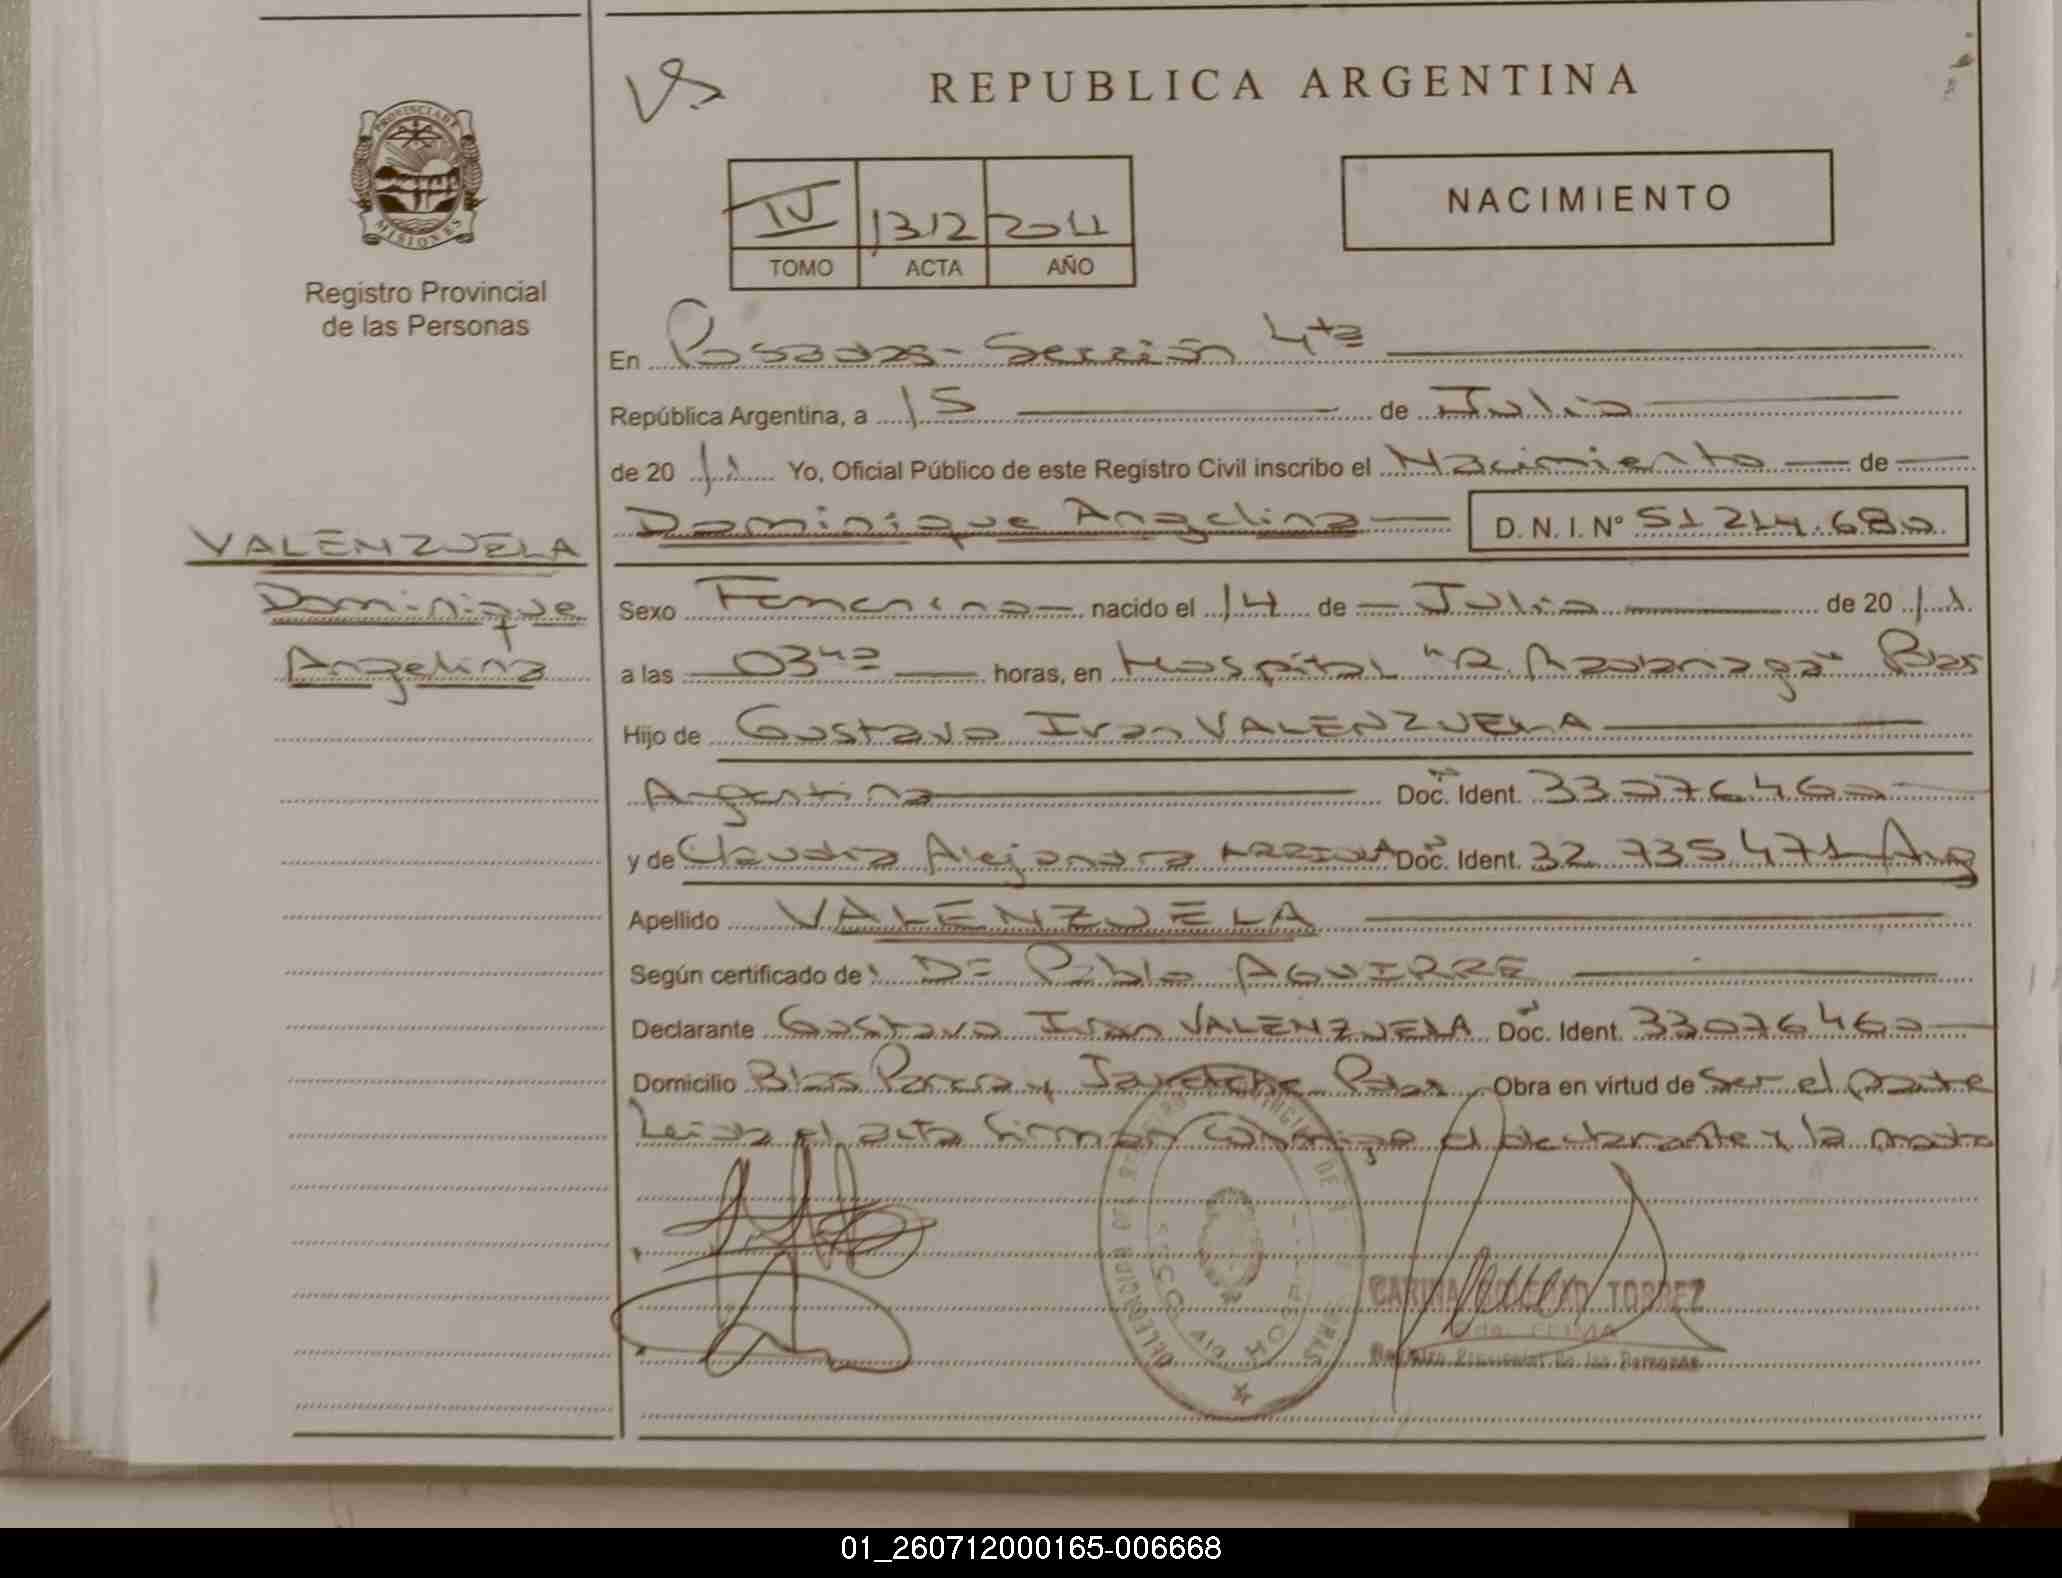 REPUBLICA ARGENTINA
PROVINCIA DE MISIONES
Registro Provincial
de las Personas
IV 1312 2011
TOMO ACTA AÑO
NACIMIENTO
En Posadas - Sección 4ta
República Argentina, a 15 de Julio
de 20 11 Yo, Oficial Público de este Registro Civil inscribo el Nacimiento de
Dominique Angelina D. N. I. Nº 51 214.680
VALENZUELA
Dominique
Angelina
Sexo Femenino nacido el 14 de Julio de 20 11
a las 03 horas, en Hospital "R. Madariaga" Pdas
Hijo de Gustavo Ivan VALENZUELA
Argentina Doc. Ident. 33076460
y de Claudia Alejandra Doc. Ident. 32 735471 Arg
Apellido VALENZUELA
Según certificado de: Dr Pablo AGUIRRE
Declarante Gustavo Ivan VALENZUELA Doc. Ident. 33076460
Domicilio Blas Parera y Jauretche Pdas Obra en virtud de ser el padre
Leida el acta firman conmigo el declarante y la madre
CARINA TORREZ
Registro Provincial De las Personas
01_260712000165-006668